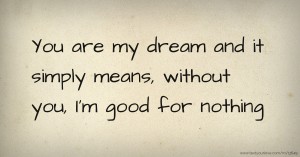 You are my dream and it
simply means, without
you, I'm good for nothing